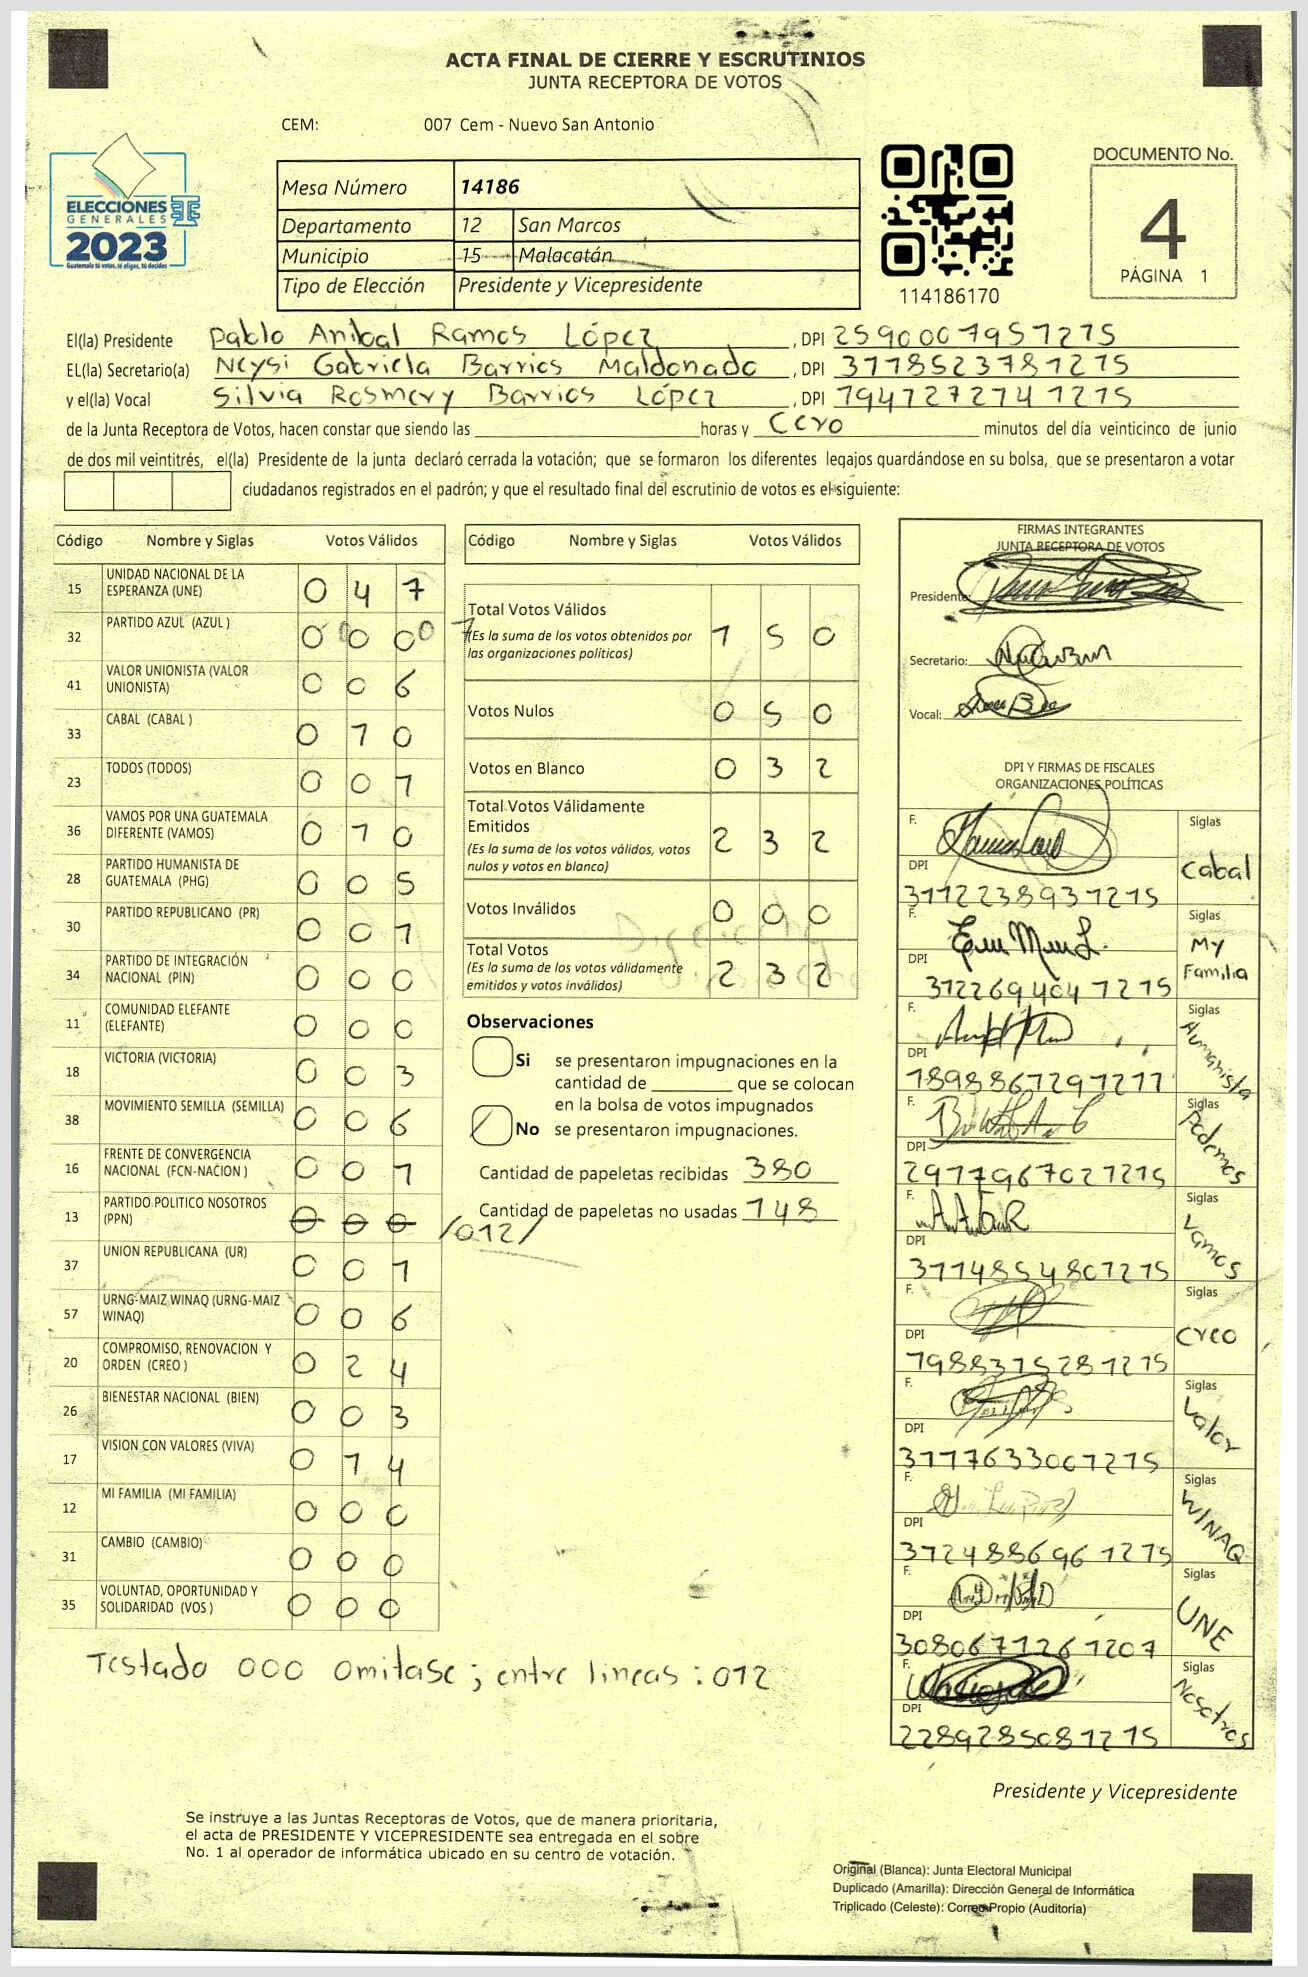 ACTA FINAL DE CIERRE Y ESCRUTINIOS
JUNTA RECEPTORA DE VOTOS
CEM: 007 Cem - Nuevo San Antonio
ELECCIONES
GENERALES
2023
Guatemala tú votas, tú eliges, tú decides
Mesa Número 14186
Departamento 12 San Marcos
Municipio 15 Malacatán
Tipo de Elección Presidente y Vicepresidente
114186170
DOCUMENTO No.
4
PÁGINA 1
El(la) Presidente Pablo Anibal Ramos López, DPI 2590007951215
EL(la) Secretario(a) Neysi Gabriela Barrios Maldonado, DPI 3118523781215
y el(la) Vocal Silvia Rosmery Barrios López, DPI 1941727241215
de la Junta Receptora de Votos, hacen constar que siendo las horas y Cero minutos del día veinticinco de junio
de dos mil veintitrés, el(la) Presidente de la junta declaró cerrada la votación; que se formaron los diferentes legajos quardándose en su bolsa, que se presentaron a votar
ciudadanos registrados en el padrón; y que el resultado final del escrutinio de votos es el siguiente:
Código Nombre y Siglas Votos Válidos
15 UNIDAD NACIONAL DE LA ESPERANZA (UNE) 0 4 7
32 PARTIDO AZUL (AZUL ) 0 0 0
41 VALOR UNIONISTA (VALOR UNIONISTA) 0 0 6
33 CABAL (CABAL ) 0 1 0
23 TODOS (TODOS) 0 0 1
36 VAMOS POR UNA GUATEMALA DIFERENTE (VAMOS) 0 1 0
28 PARTIDO HUMANISTA DE GUATEMALA (PHG) 0 0 5
30 PARTIDO REPUBLICANO (PR) 0 0 1
34 PARTIDO DE INTEGRACIÓN NACIONAL (PIN) 0 0 0
11 COMUNIDAD ELEFANTE (ELEFANTE) 0 0 0
18 VICTORIA (VICTORIA) 0 0 3
38 MOVIMIENTO SEMILLA (SEMILLA) 0 0 6
16 FRENTE DE CONVERGENCIA NACIONAL (FCN-NACION ) 0 0 1
13 PARTIDO POLITICO NOSOTROS (PPN) 0 0 0 /012/
37 UNION REPUBLICANA (UR) 0 0 1
57 URNG-MAIZ WINAQ (URNG-MAIZ WINAQ) 0 0 6
20 COMPROMISO, RENOVACION Y ORDEN (CREO ) 0 2 4
26 BIENESTAR NACIONAL (BIEN) 0 0 3
17 VISION CON VALORES (VIVA) 0 1 4
12 MI FAMILIA (MI FAMILIA) 0 0 0
31 CAMBIO (CAMBIO) 0 0 0
35 VOLUNTAD, OPORTUNIDAD Y SOLIDARIDAD (VOS ) 0 0 0
Testado 000 omitase; entre lineas: 012
Código Nombre y Siglas Votos Válidos
Total Votos Válidos 1 5 0
(Es la suma de los votos obtenidos por
las organizaciones políticas)
Votos Nulos 0 5 0
Votos en Blanco 0 3 2
Total Votos Válidamente
Emitidos 2 3 2
(Es la suma de los votos válidos, votos
nulos y votos en blanco)
Votos Inválidos 0 0 0
Total Votos 2 3 2
(Es la suma de los votos válidamente
emitidos y votos inválidos)
Observaciones
Si se presentaron impugnaciones en la
cantidad de que se colocan
en la bolsa de votos impugnados
No se presentaron impugnaciones.
Cantidad de papeletas recibidas 380
Cantidad de papeletas no usadas 148
FIRMAS INTEGRANTES
JUNTA RECEPTORA DE VOTOS
Presidente:
Secretario:
Vocal:
DPI Y FIRMAS DE FISCALES
ORGANIZACIONES POLÍTICAS
F. Siglas
DPI Cabal
3112238931215
F. Siglas
DPI My Familia
3122694041215
F. Siglas
DPI Humanista
1898861291211
F. Siglas
DPI Podemos
2971967021215
F. Siglas
DPI Vamos
3114854801215
F. Siglas
DPI Creo
1988315281215
F. Siglas
DPI Valor
3117633001215
F. Siglas
DPI WINAQ
3124886961215
F. Siglas
DPI UNE
3080671261207
F. Siglas
DPI Nosotros
2289285081215
Presidente y Vicepresidente
Se instruye a las Juntas Receptoras de Votos, que de manera prioritaria,
el acta de PRESIDENTE Y VICEPRESIDENTE sea entregada en el sobre
No. 1 al operador de informática ubicado en su centro de votación.
Original (Blanca): Junta Electoral Municipal
Duplicado (Amarilla): Dirección General de Informática
Triplicado (Celeste): Correo Propio (Auditoría)